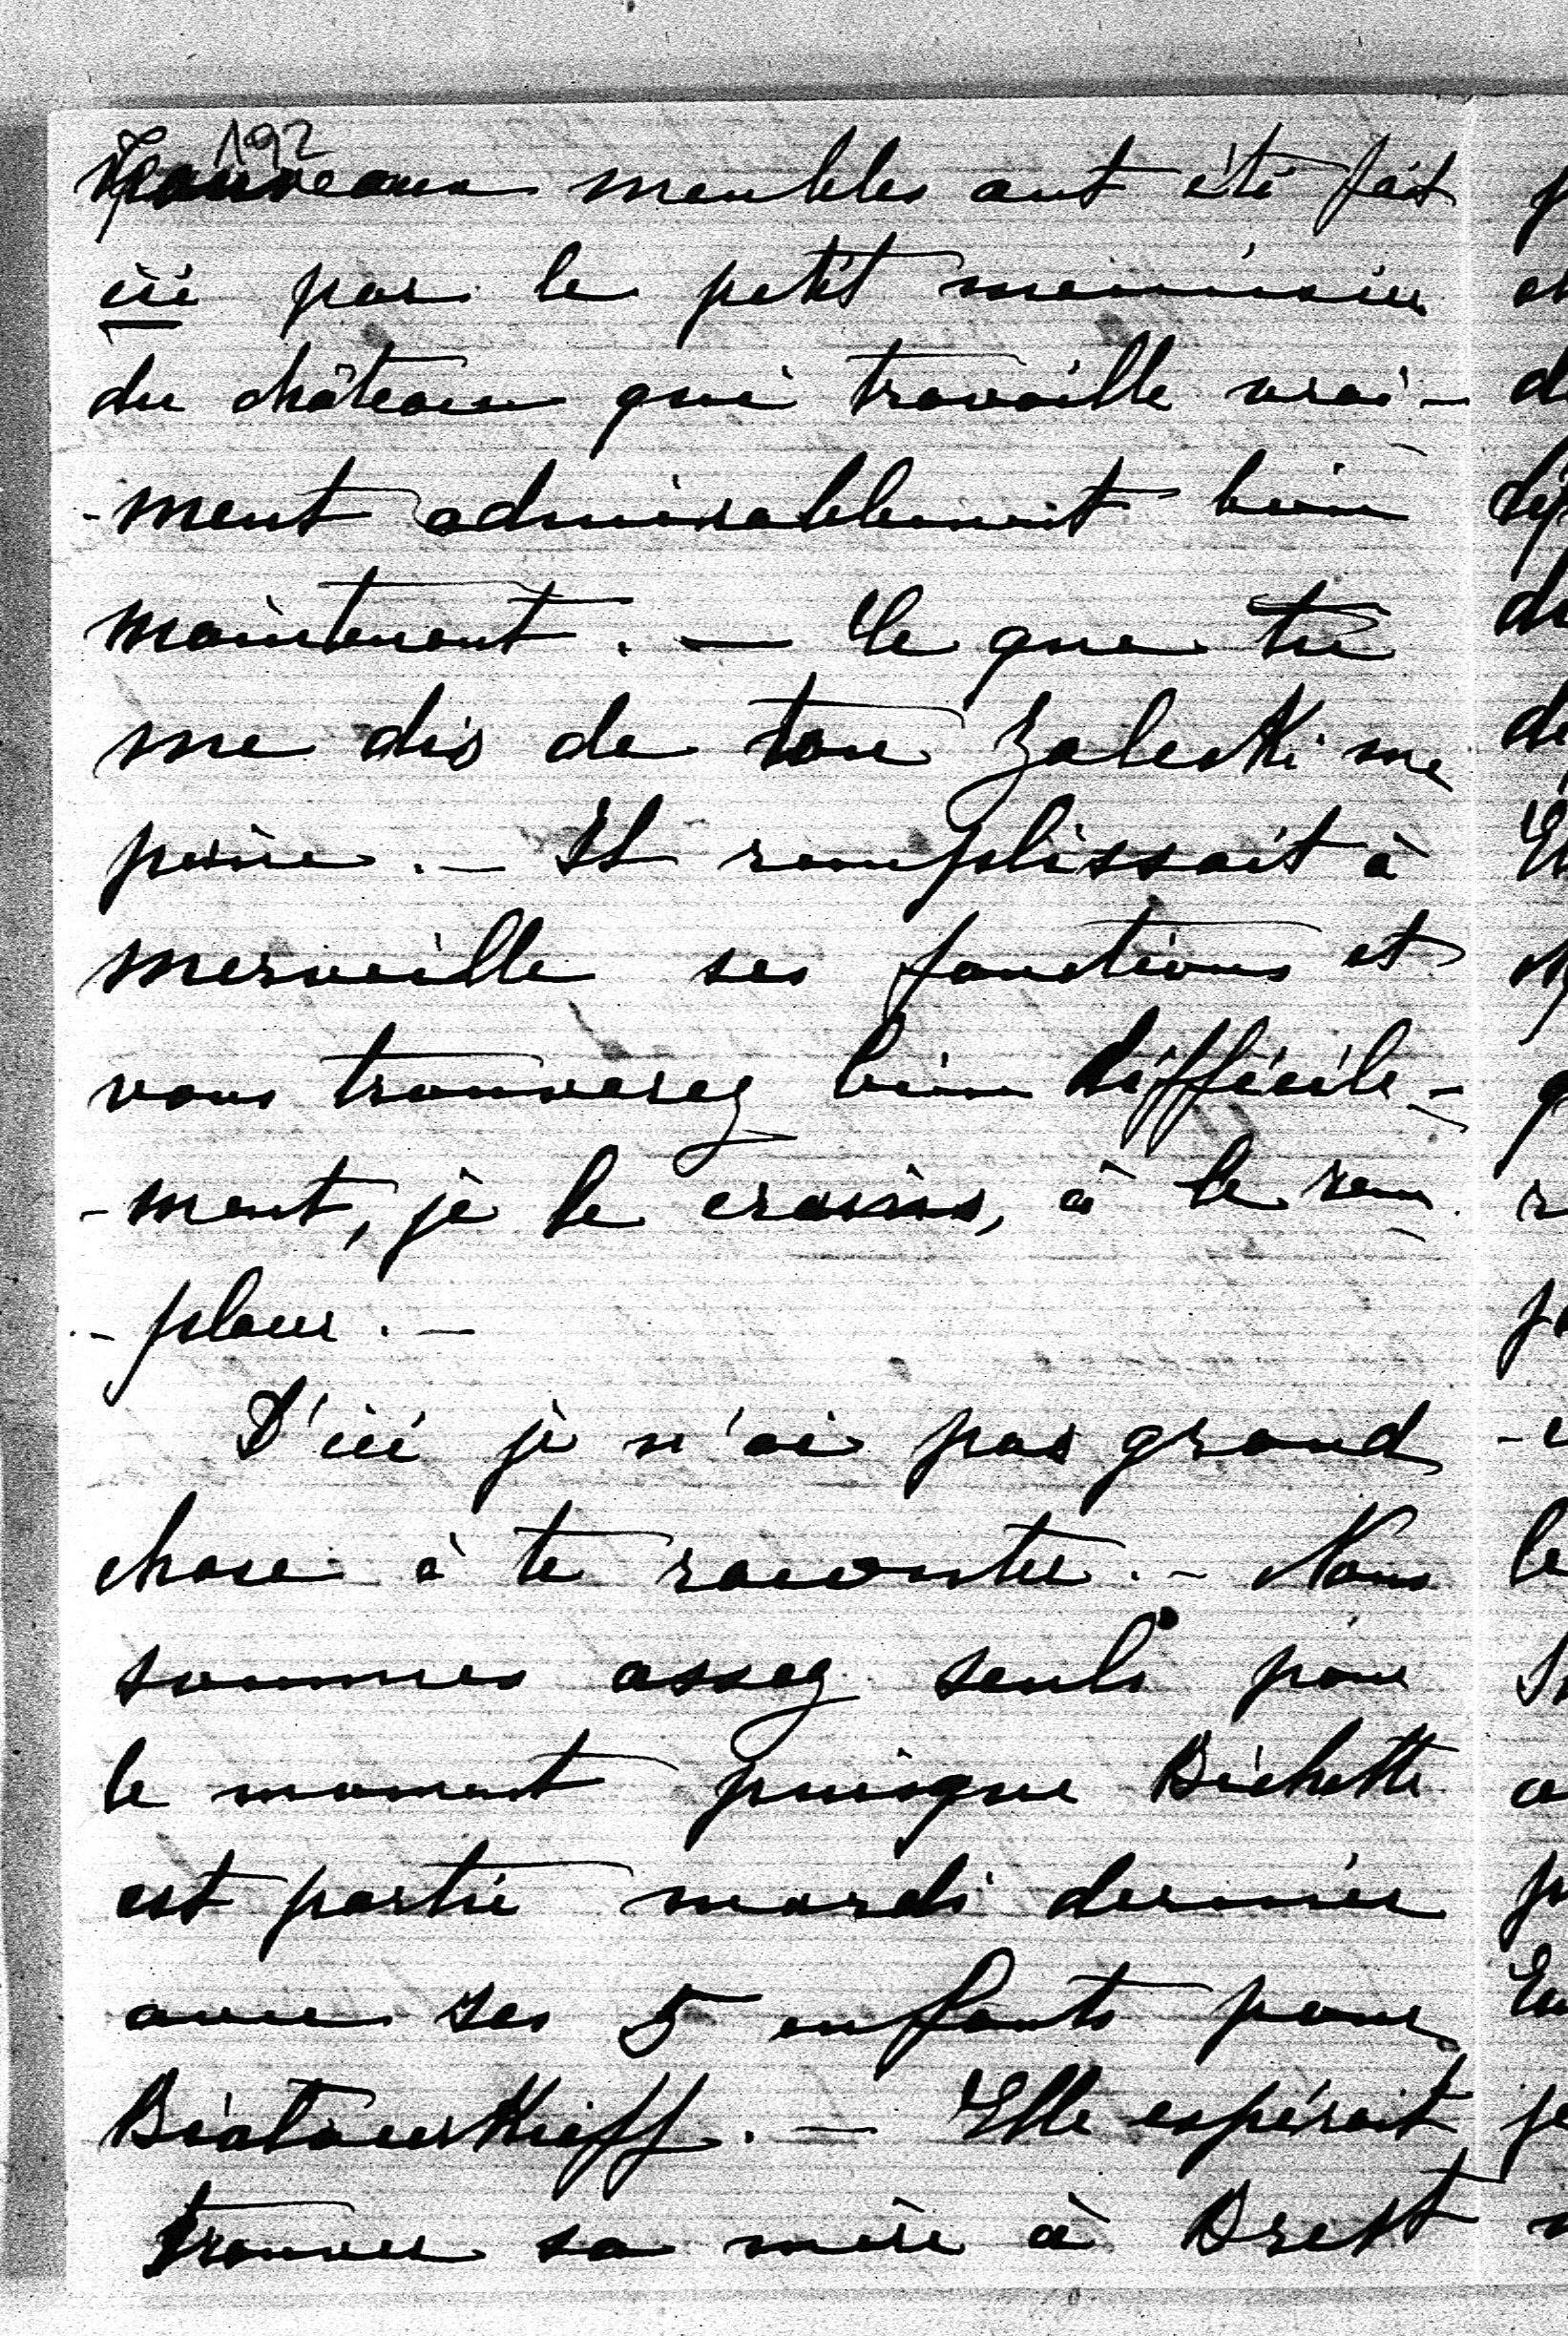 192
Nouveaux meubles ont été fait
ici par le petit menuisier
du château qui travaille vrai-
-ment admirablement bien
maintenant. — Ce que tu
me dis de ton Zaleski me
peine. — Il remplissait à
merveille ses fonctions et
vous trouverez bien difficile-
-ment, je le crains, à le rem-
-placer. —
D'ici je n'ai pas grand
chose à te raconter. — Nous
sommes assez seuls pour
le moment puisque Bichette
est partie mardi dernier
avec ses 5 enfants pour
Białacerkieff. — Elle espérait
trouver sa mère à Brest